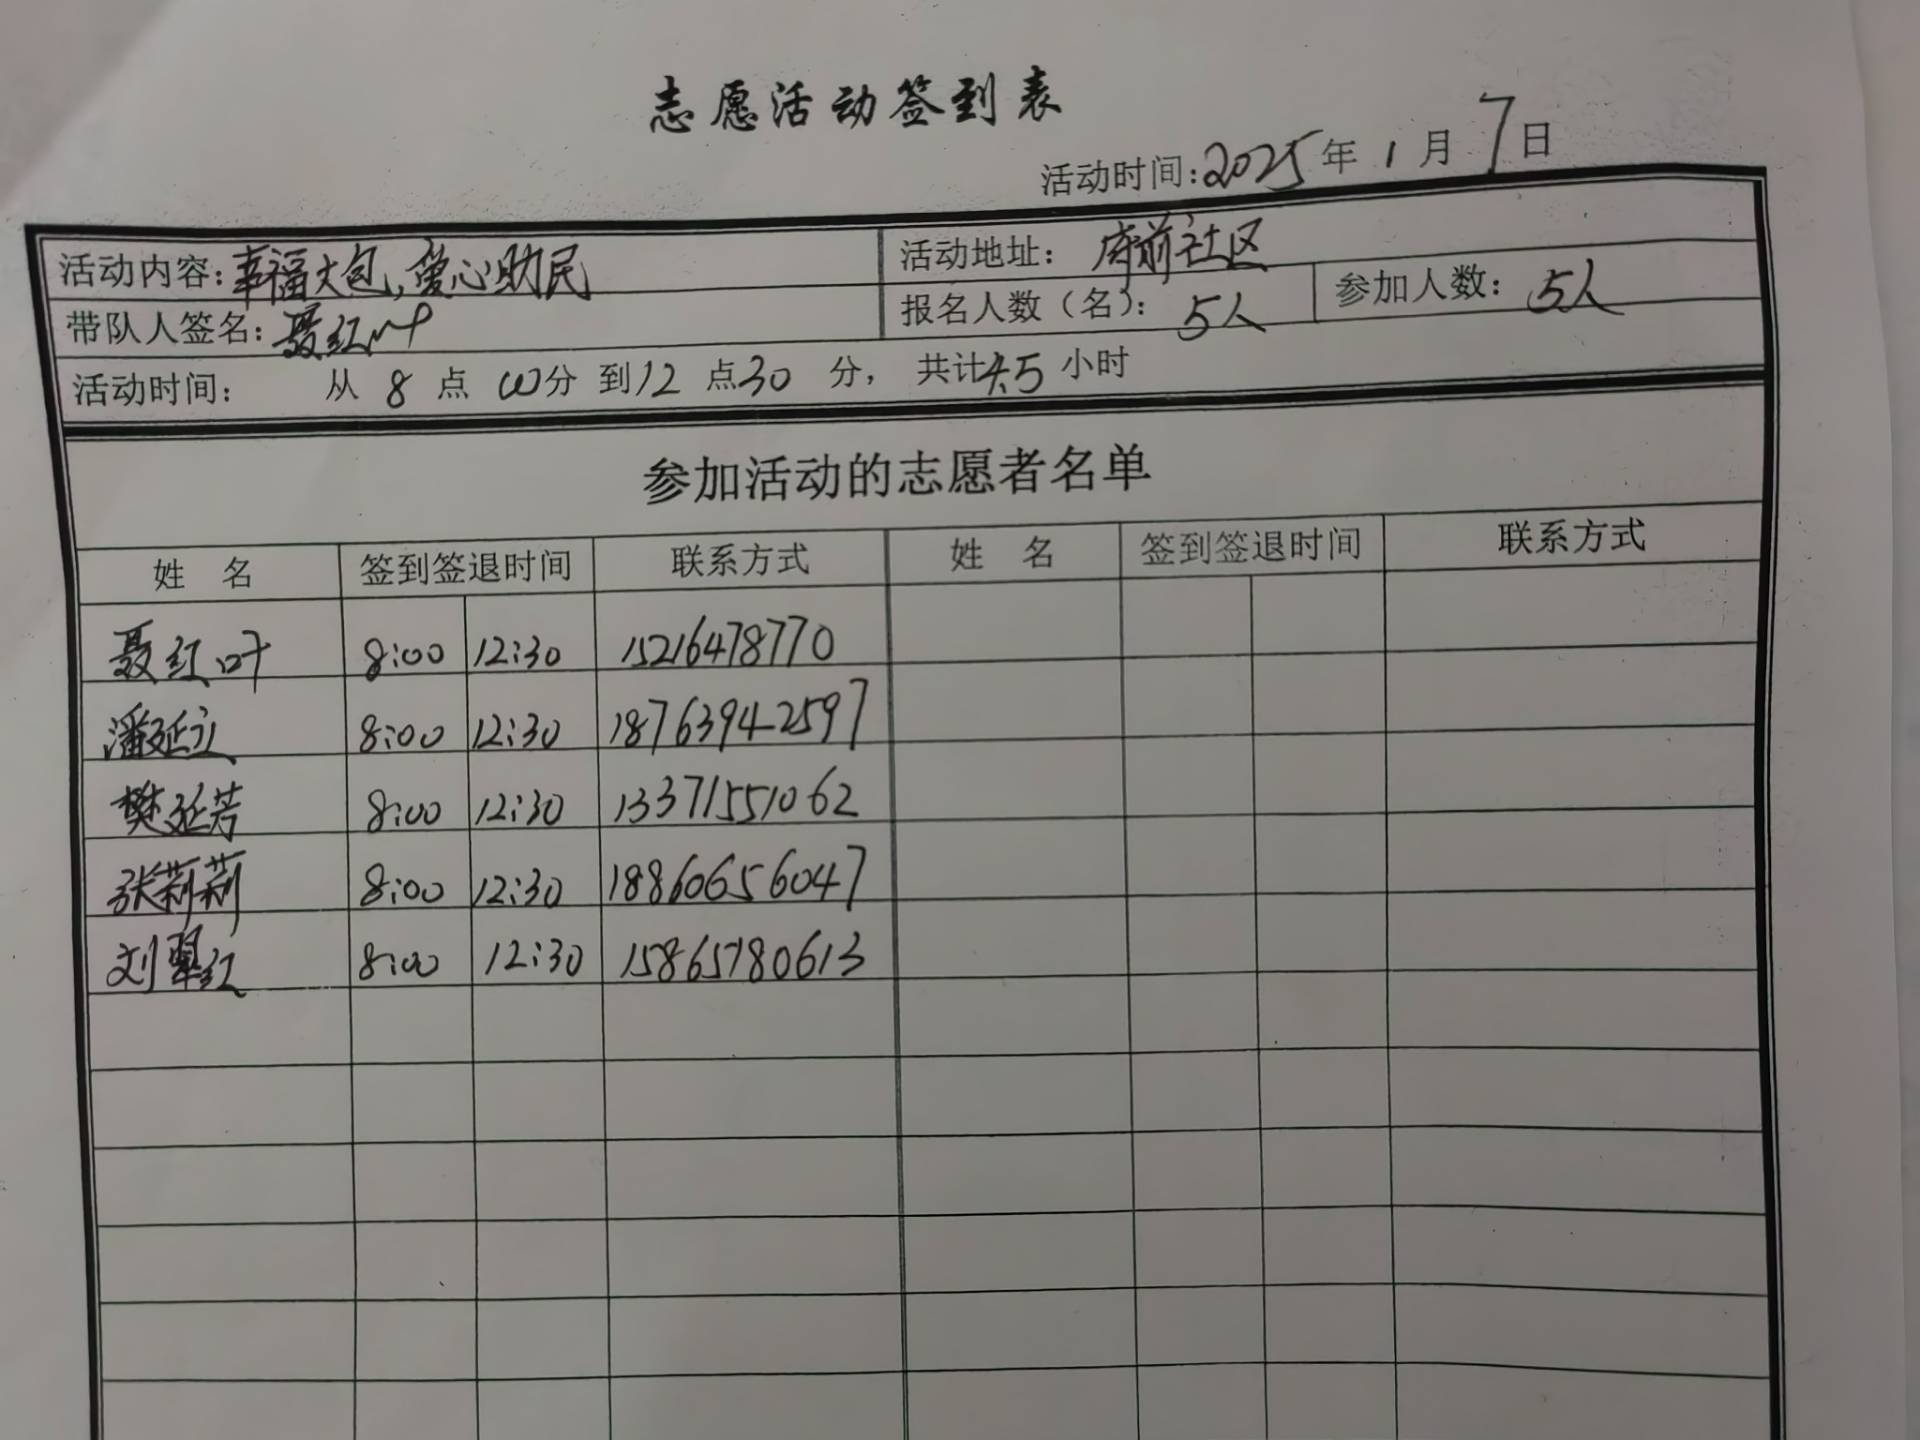 志愿活动签到表
活动时间:2025年1月7日
活动内容:幸福大包,爱心助民 活动地址: 府前社区
带队人签名:聂红叶 报名人数(名): 5人 参加人数: 5人
活动时间: 从 8 点 00分 到12 点30 分, 共计4.5 小时
参加活动的志愿者名单
姓 名 签到签退时间 联系方式 姓 名 签到签退时间 联系方式
聂红叶 8:00 12:30 15216478770
潘延立 8:00 12:30 18763942597
樊延芳 8:00 12:30 13371551062
张莉莉 8:00 12:30 18860656047
刘翠红 8:00 12:30 15865780613